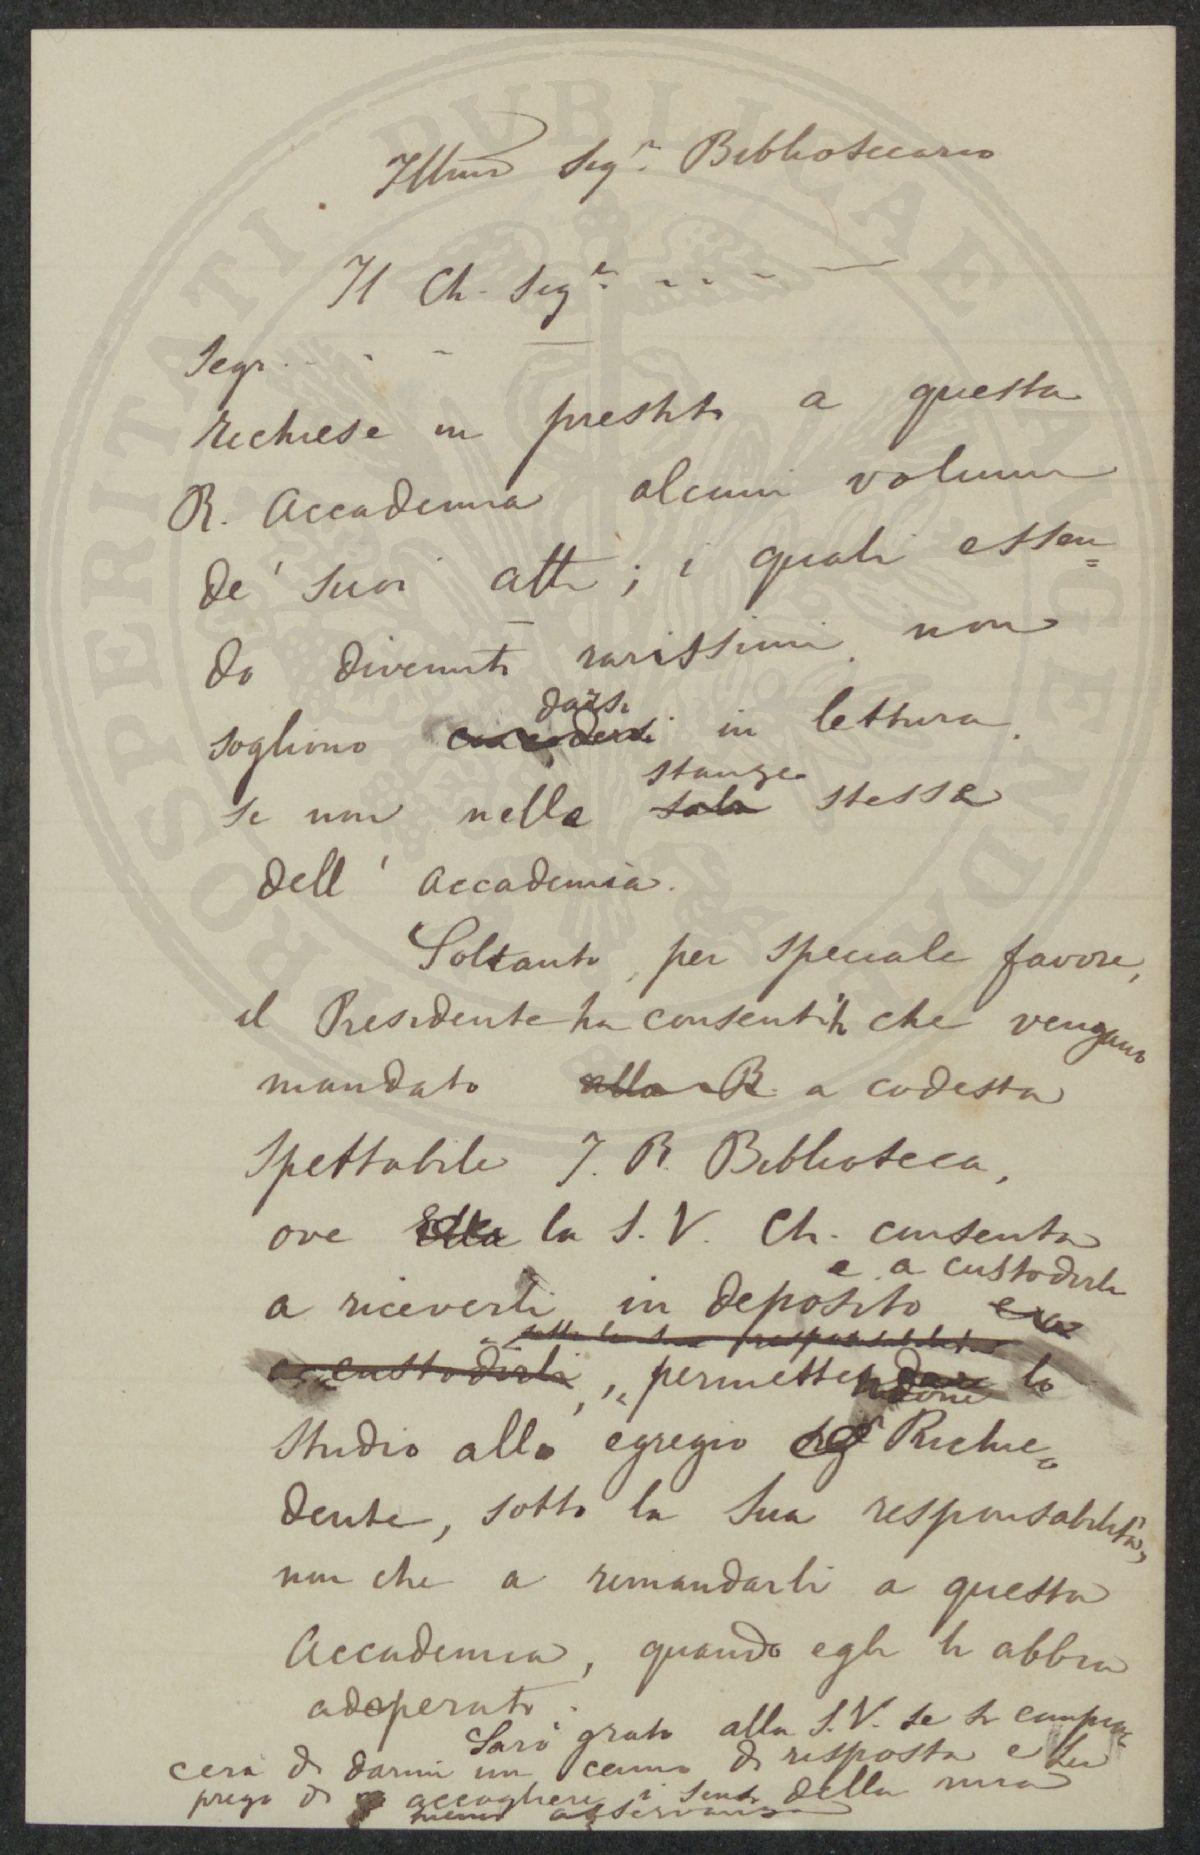 PROSPERITATI PUBLICAE AUGENDAE
Illmo Sigr. Bibliotecario
Il Ch. Sigr. . . . .
Segr. . . .
richiese in prestito a questa
R. Accademia alcuni volumi
de' suoi atti; i quali essen=
do divenuti rarissimi non
darsi
sogliono concedersi in lettura
stanze
se non nelle sala stesse
dell' Accademia.
Soltanto, per speciale favore,
il Presidente ha consentito che vengano
mandato alla R. a codesta
Spettabile I. R. Biblioteca,
ove Ella la S. V. Ch. consenta
e a custodirli
a riceverli in deposito e a
sotto la sua responsabilità
a custodirli, permettendone lo
studio allo egregio Sigr Richie=
dente, sotto la sua responsabilità,
non che a rimandarli a questa
Accademia, quando egli li abbia
adoperati.
Sarò grato alla S. V. se si compia=
cerà di darmi un cenno di risposta e La
prego di accogliere i sensi della mia
osservanza